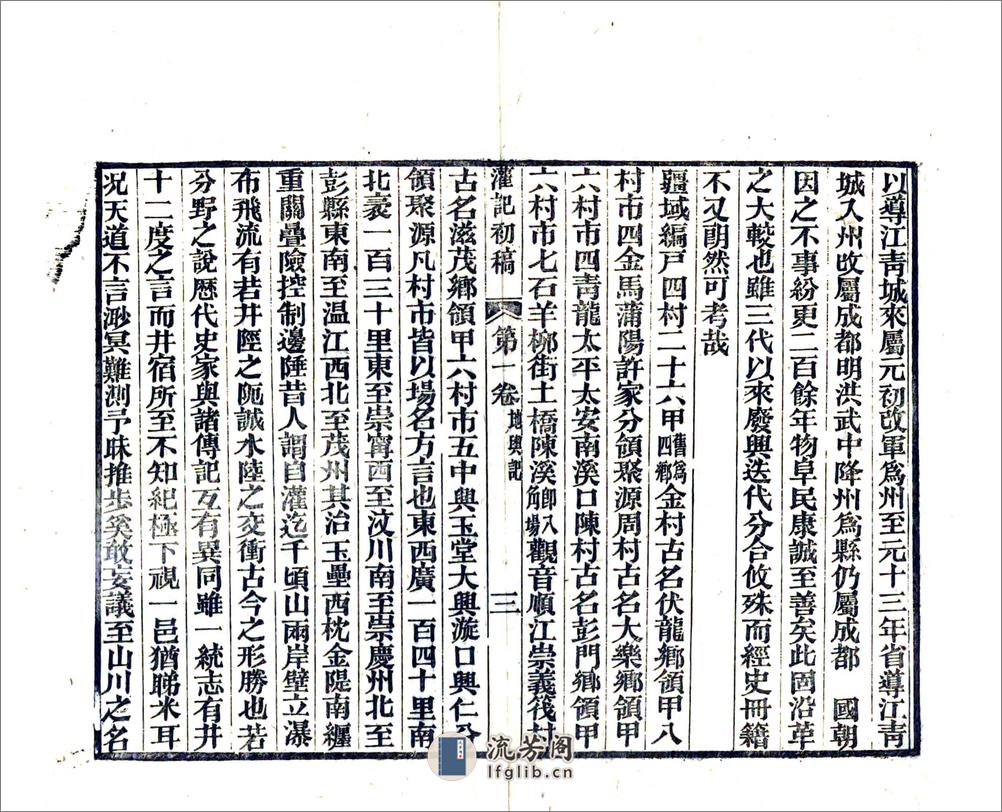 以導江靑城來屬元初改軍爲州至元十三年省導江靑
城入州改屬成都明洪武中降州爲縣仍屬成都　國朝
因之不事紛更二百餘年物阜民康誠至善矣此固沿革
之大較也雖三代以來廢興迭代分合攸殊而經史冊籍
不又朗然可考哉
疆域編戸四村二十六甲舊爲四鄉金村古名伏龍鄉領甲八
村市四金馬蒲陽許家分領聚源周村古名大樂鄉領甲
六村市四靑龍太平太安南溪口陳村古名彭門鄉領甲
六村市七石羊柳街土橋陳溪卽八角場觀音順江崇義筏村
灌記初稿　第一卷　地輿記　三
古名滋茂鄉領甲六村市五中興玉堂大興漩口興仁分
領聚源凡村市皆以場名方言也東西廣一百四十里南
北袤一百三十里東至崇寧西至汶川南至崇慶州北至
彭縣東南至温江西北至茂州其治玉壘西枕金隄南纏
重關疊險控制邊陲昔人謂自灌迄千頃山兩岸壁立瀑
布飛流有若井陘之阨誠水陸之交衝古今之形勝也若
分野之說歴代史家與諸傳記互有異同雖一統志有井
十二度之言而井宿所至不知紀極下視一邑猶睇米耳
况天道不言渺冥難測予昧推步奚敢妄議至山川之名
流芳阁
lfglib.cn